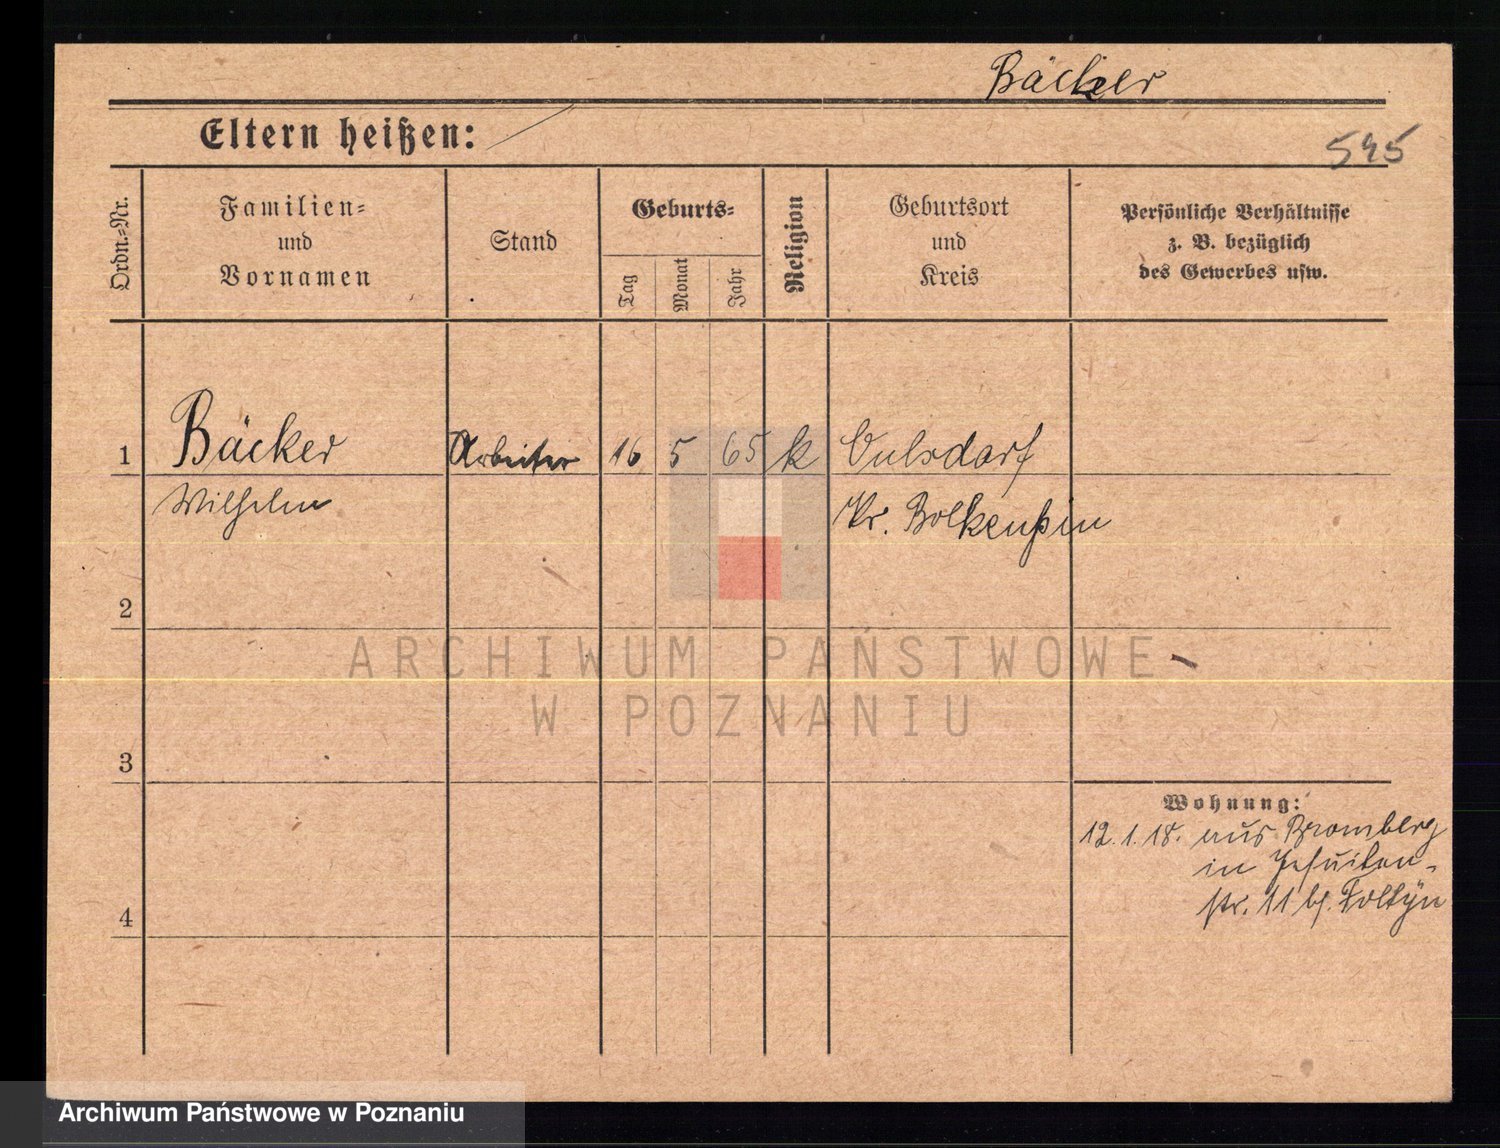 Bäcker
Eltern heißen:
545
Ordn.-Nr.
Familien-
und
Vornamen
Stand
Geburts-
Tag
Monat
Jahr
Religion
Geburtsort
und
Kreis
Persönliche Verhältnisse
z. B. bezüglich
des Gewerbes usw.
1
Bäcker
Arbeiter
16
5
65
k
Wilhelm
Kr. Bolkenhin
2
ARCHIWUM PAŃSTWOWE
W POZNANIU
3
Wohnung:
12. 1. 18. aus Bromberg
in Jesuiten-
str. 11 bf. Foltyn
4
Archiwum Państwowe w Poznaniu